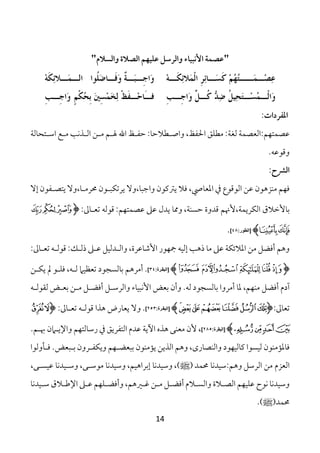 "عصمة الأنبياء والرسل عليهم الصلاة والسلام"
عِصْمَتُهُمْ كَسَائِرِ الْمَلَائِكَهْ وَاجِبَةٌ وَفَاضَلُوا الْمَلَائِكَهْ
وَالْمُسْتَحِيلُ ضِدُّ كُلِّ وَاجِبِ فَاحْفَظْ لِخَمْسِينَ بِحُكْمٍ وَاجِبِ
المفردات:
عصمتهم:العصمة لغة: مطلق الحفظ، واصطلاحا: حفظ الله لهم من الذنب مع استحالة
وقوعه.
الشرح:
فهم منزهون عن الوقوع في المعاصي، فلا يتركون واجبا،ولا يرتكبون محرما،ولا يتصفون إلا
بالأخلاق الكريمة،لأنهم قدوة حسنة، ومما يدل على عصمتهم: قوله تعالى: ﴿وَاصْبِرْ لِحُكْمِ رَبِّكَ
فَإِنَّكَ بِأَعْيُنِنَا﴾ [الطور:٤٨].
وهم أفضل من الملائكة على ما ذهب إليه جمهور الأشاعرة، والدليل على ذلك: قوله تعالى:
﴿وَإِذْ قُلْنَا لِلْمَلَائِكَةِ اسْجُدُوا لِآدَمَ فَسَجَدُوا﴾ [البقرة:٣٤]. أمرهم بالسجود تعظيما له، فلو لم يكن
آدم أفضل منهم، لما أمروا بالسجود له. وأن بعض الأنبياء والرسل أفضل من بعض لقوله
تعالى:﴿تِلْكَ الرُّسُلُ فَضَّلْنَا بَعْضَهُمْ عَلَى بَعْضٍ﴾ [البقرة:٢٥٣]. ولا يعارض هذا قوله تعالى: ﴿لَا نُفَرِّقُ
بَيْنَ أَحَدٍ مِنْ رُسُلِهِ﴾ [البقرة:٢٨٥]، لأن معنى هذه الآية عدم التفريق في رسالتهم والإيمان بهم.
فالمؤمنون ليسوا كاليهود والنصارى، وهم الذين يؤمنون ببعضهم ويكفرون ببعض. فأولوا
العزم من الرسل وهم:سيدنا محمد (ﷺ)، وسيدنا إبراهيم، وسيدنا موسى، وسيدنا عيسى،
وسيدنا نوح عليهم الصلاة والسلام أفضل من غيرهم، وأفضلهم على الإطلاق سيدنا
محمد(ﷺ).
14